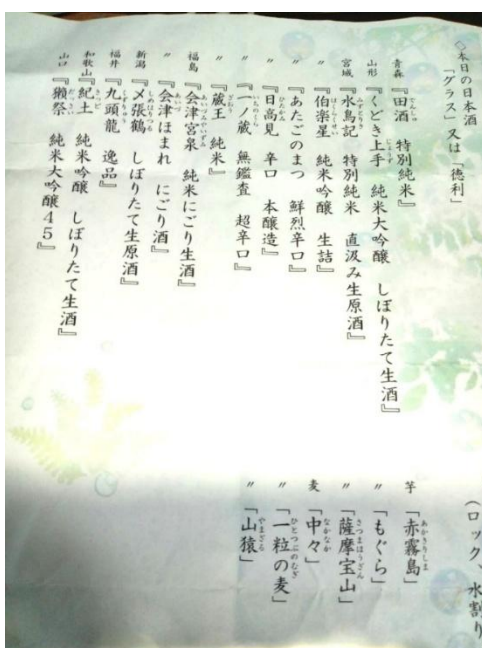 ◇本日の日本酒
「グラス」又は「徳利」
青森 『田酒 特別純米』
山形 『くどき上手 純米大吟醸 しぼりたて生酒』
宮城 『水鳥記 特別純米 直汲み生原酒』
〃 『伯楽星 純米吟醸 生詰』
〃 『あたごのまつ 鮮烈辛口』
〃 『日高見 辛口 本醸造』
〃 『一ノ蔵 無鑑査 超辛口』
〃 『蔵王 純米』
福島 『会津宮泉 純米にごり生酒』
〃 『会津ほまれ にごり酒』
新潟 『〆張鶴 しぼりたて生原酒』
福井 『九頭龍 逸品』
和歌山 『紀土 純米吟醸 しぼりたて生酒』
山口 『獺祭 純米大吟醸45』
(ロック、水割り
芋 「赤霧島」
〃 「もぐら」
〃 「薩摩宝山」
麦 「中々」
〃 「一粒の麦」
〃 「山猿」